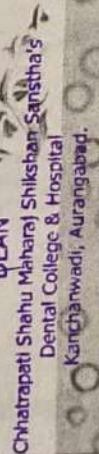 Chhatrapati Shahu Maharaj Shikshan Sanstha's
Dental College & Hospital
Kanchanwadi, Aurangabad.